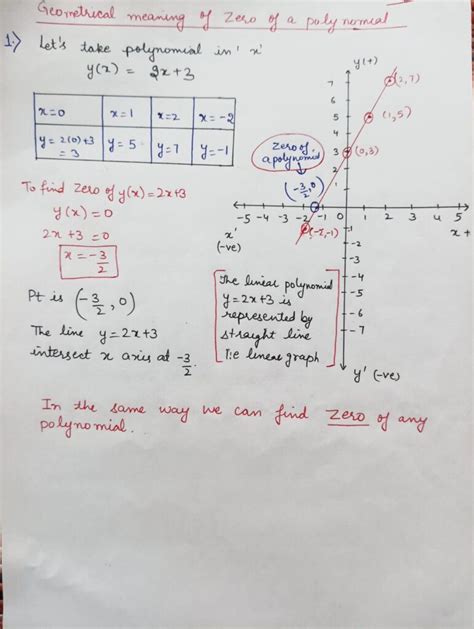 Geometrical meaning of Zero of a polynomial
1.) Let's take polynomial in 'x'
y(x) = 2x+3
x=0 x=1 x=2 x=-2
y=2(0)+3 =3 y=5 y=7 y=-1
To find zero of y(x)=2x+3
y(x)=0
2x+3=0
x=-3/2
Pt is (-3/2, 0)
The line y=2x+3
intersect x axis at -3/2.
y(+)
7
6
5
4
3
2
1
(2,7)
(1,5)
(0,3)
zero of
a polynomial
(-3/2, 0)
-5 -4 -3 -2 -1 0 1 2 3 4 5
x +
x'
(-ve)
(-2,-1)
-1
-2
-3
-4
-5
-6
-7
y' (-ve)
The linear polynomial
y=2x+3 is
represented by
straight line
i.e linear graph
In the same way we can find zero of any
polynomial.